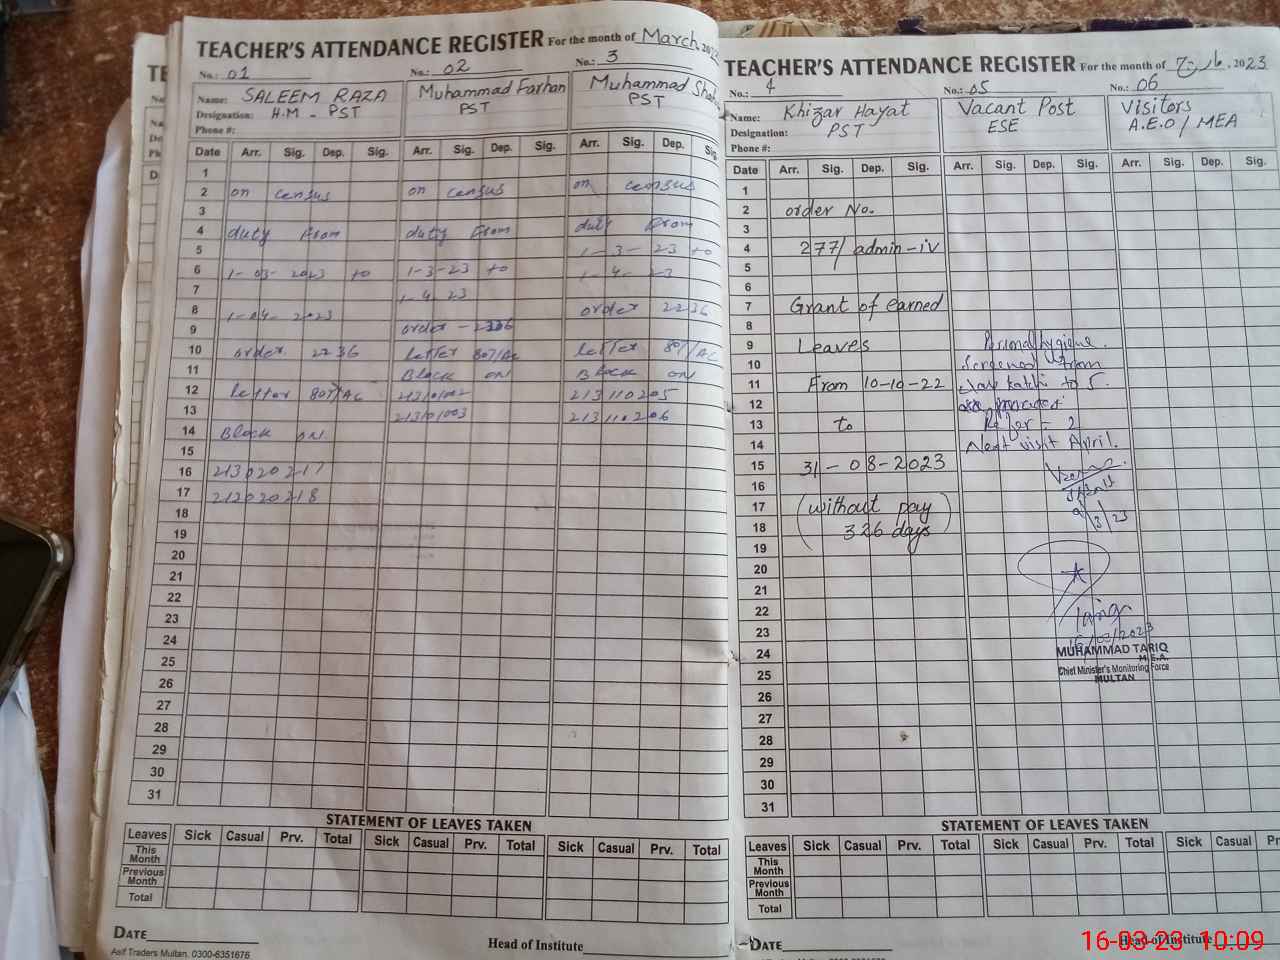 TEACHER'S ATTENDANCE REGISTER For the month of March, 2023
No.: 01 No.: 02 No.: 3
Name: SALEEM RAZA Muhammad Farhan Muhammad
Designation: H.M - PST PST PST
Phone #:
Date Arr. Sig. Dep. Sig. Arr. Sig. Dep. Sig. Arr. Sig. Dep. Sig
1
2 on census on census on census
3
4 duty From duty From duty From
5 1-3-23 to
6 1-03-2023 to 1-3-23 to 1-4-23
7 1-4-23
8 1-04-2023 order 2236
9 order -
10 order 2236 letter 807/AC letter 807/AC
11 Block on Block on
12 letter 807/AC 213101002 213110205
13 213101003 213110206
14 Block on
15
16 213020217
17 212020218
18
19
20
21
22
23
24
25
26
27
28
29
30
31
STATEMENT OF LEAVES TAKEN
Leaves Sick Casual Prv. Total Sick Casual Prv. Total Sick Casual Prv. Total
This Month
Previous Month
Total
DATE
Head of Institute
Asif Traders Multan. 0300-6351676
TEACHER'S ATTENDANCE REGISTER For the month of مارچ, 2023
No.: 4 No.: 05 No.: 06
Name: Khizar Hayat Vacant Post Visitors
Designation: PST ESE A.E.O / MEA
Phone #:
Date Arr. Sig. Dep. Sig. Arr. Sig. Dep. Sig. Arr. Sig. Dep. Sig.
1
2 order No.
3
4 277/ admin-iv
5
6
7 Grant of earned
8
9 Leaves Personal hygiene.
10 Screened from
11 From 10-10-22 katchi to 5.
12
13 to Refer = 2
14 Next visit April.
15 31-08-2023
16
17 (without pay
18 326 days) 9/3/23
19
20
21
22
23 16/03/2023
24 MUHAMMAD TARIQ
M.E.A.
25 Chief Minister's Monitoring Force
MULTAN
26
27
28
29
30
31
STATEMENT OF LEAVES TAKEN
Leaves Sick Casual Prv. Total Sick Casual Prv. Total Sick Casual Pr
This Month
Previous Month
Total
DATE
Head of Institute
16-03-23 10:09